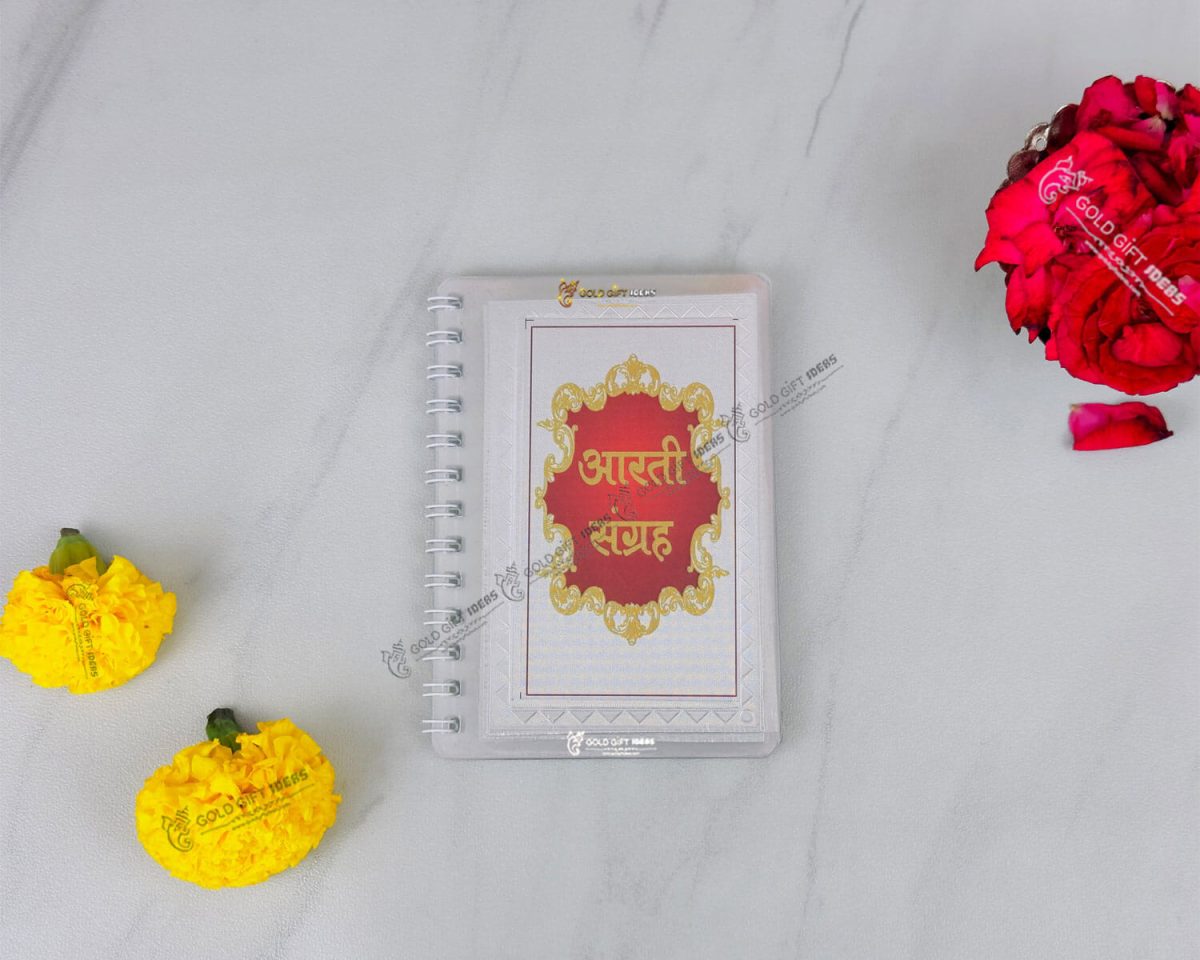 GOLD GIFT IDEAS
आरती
संग्रह
GOLD GIFT IDEAS
GOLD GIFT IDEAS
GOLD GIFT IDEAS
GOLD GIFT IDEAS
GOLD GIFT IDEAS
GOLD GIFT IDEAS
GOLD GIFT IDEAS
GOLD GIFT IDEAS